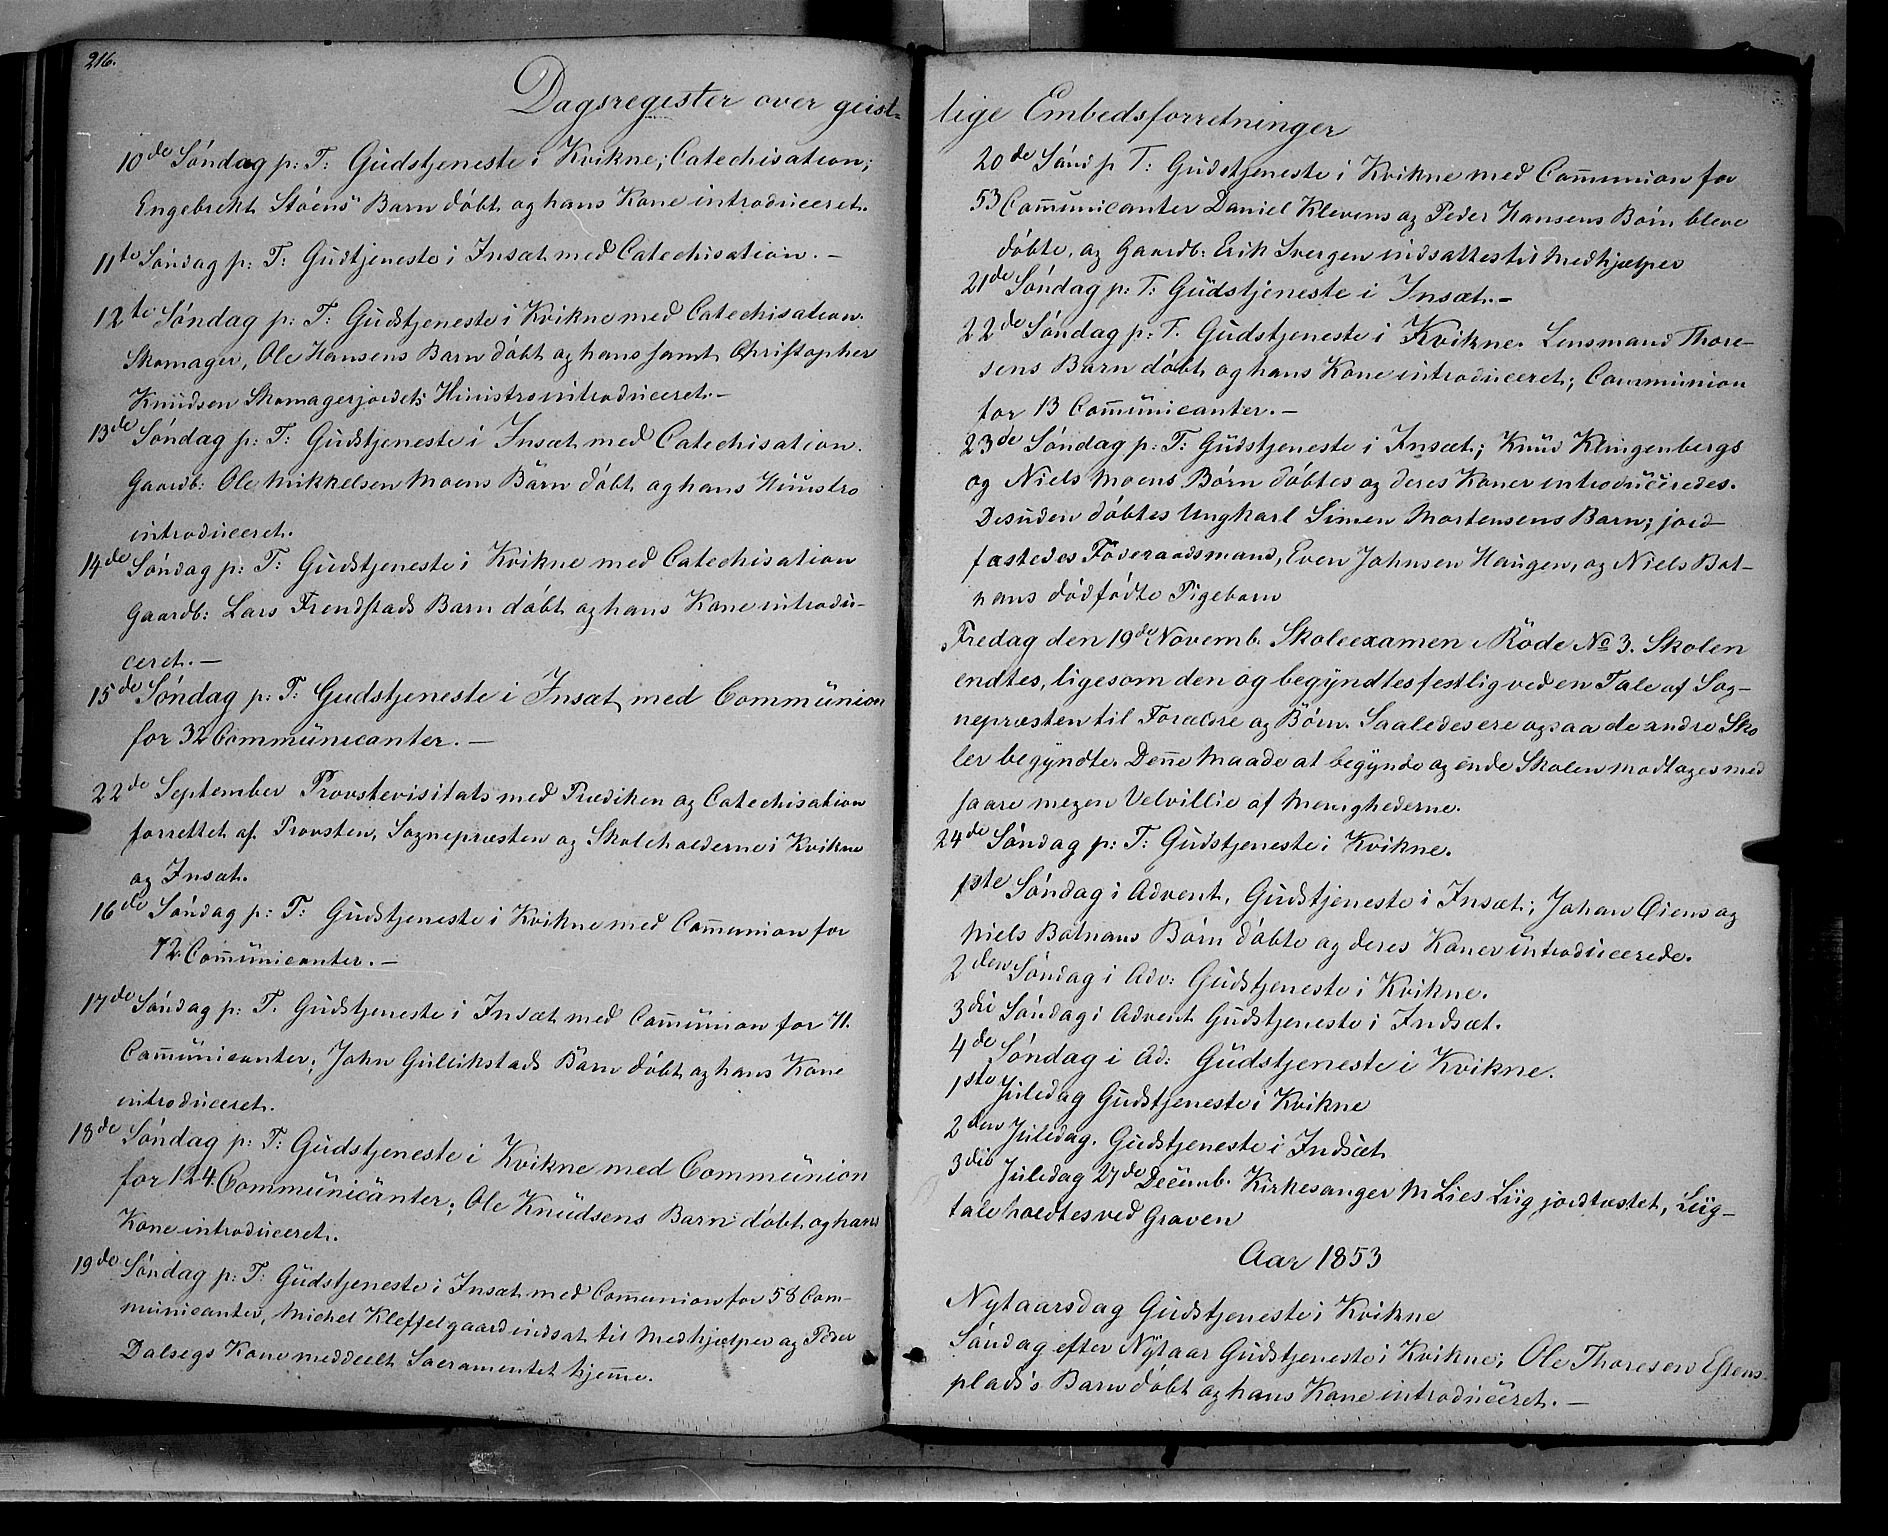 216.
Dagsregister over geist-
10de Søndag p: T: Gudstjeneste i Kvikne; Catechisation;
Engebrekt Støens Barn døbt og hans Kone introduceret.
11te Søndag p: T: Gudtjeneste i Insæt med Catechisation. –
12te Søndag p: T: Gudstjeneste i Kvikne med Catechisation.
Skomager, Ole Hansens Barn døbt og hans samt Christopher
Knudsen Skomagerjordets Hustro introduceret. –
13de Søndag p: T: Gudstjeneste i Insæt med Catechisation.
Gaardb: Ole Mikkelsen Moens Barn døbt og hans Huustro
introduceret.
14de Søndag p: T: Gudstjeneste i Kvikne med Catechisation
Gaardb: Lars Frendstads Barn døbt og hans Kone introdu-
ceret. –
15de Søndag p: T: Gudstjeneste i Insæt med Communion
for 32 Communicanter. –
22de September Provstevisitats med Prædiken og Catechisation
forrettet af Provsten, Sognepræsten og Skoleholderne i Kvikne
og Insæt.
16de Søndag p: T: Gudstjeneste i Kvikne med Com̅union for
72 Com̅unicanter. –
17de Søndag p: T. Gudstjeneste i Insæt med Com̅union for 71.
Com̅unicanter; John Gullikstads Barn døbt og hans Kone
introduceret.
18de Søndag p: T: Gudstjeneste i Kvikne med Communion
for 124 Communicanter; Ole Knudsens Barn døbt og hans
Kone introduceret.
19de Søndag p: T: Gudstjeneste i Insæt med Com̅union for 58 Com-
municanter, Michel Kleffelgaard indsat til Medhjælper og Peder
Dalsegs Kone meddeelt Sacramentet hjem̅e.
lige Embedsforretninger
20de Sønd p T: Gudstjeneste i Kvikne med Com̅union for
53 Com̅unicanter Daniel Klevens og Peder Hansens Børn bleve
døbte, og Gaardb: Erik Svergen indsattes til Medhjælper
21de Søndag p: T: Gudstjeneste i Insæt. –
22de Søndag p: T. Gudstjeneste i Kvikne. Lensmand Thore-
sens Barn døbt og hans Kone introduceret; Communion
for 13 Com̅unicanter. –
23de Søndag p: T: Gudstjeneste i Insæt; Knud Klingenbergs
og Niels Moens Børn døbtes og deres Koner introduceredes.
Desuden døbtes Ungkarl Simen Mortensens Barn; jord-
fæstedes Föderaadsmand, Even Johnsen Haugen, og Niels Bot-
nans dødfødte Pigebarn
Fredag den 19de Novemb. Skoleexamen i Rode No 3. Skolen
endtes, ligesom den og begyndtes festlig ved en Tale af Sog-
nepræsten til Forældre og Børn. Saaledes ere ogsaa de andre Sko
ler begyndte. Den̅e Maade at begynde og ende Skolen modtoges med
saare megen Velvillie af Menighederne.
24de Søndag p: T: Gudstjeneste i Kvikne.
1ste Søndag i Advent, Gudstjeneste i Insæt; Johan Øiens og
Niels Botnans Børn døbte og deres Koner introducerede.
2den Søndag i Adv: Gudstjeneste i Kvikne.
3die Søndag i Advent Gudstjeneste i Indsæt.
4de Søndag i Ad: Gudstjeneste i Kvikne.
1ste Juledag Gudstjeneste i Kvikne
2den Juledag. Gudstjeneste i Indsæt
3die Juledag 27de Decemb. Kirkesanger M Lies Liig jordfæstet, Liig-
tale holdtes ved Graven
Aar 1853
Nytaarsdag Gudstjeneste i Kvikne
Søndag efter Nytaar Gudstjeneste i Kvikne; Ole Thoresen Estens-
plads's Barn døbt og hans Kone introduceret. –